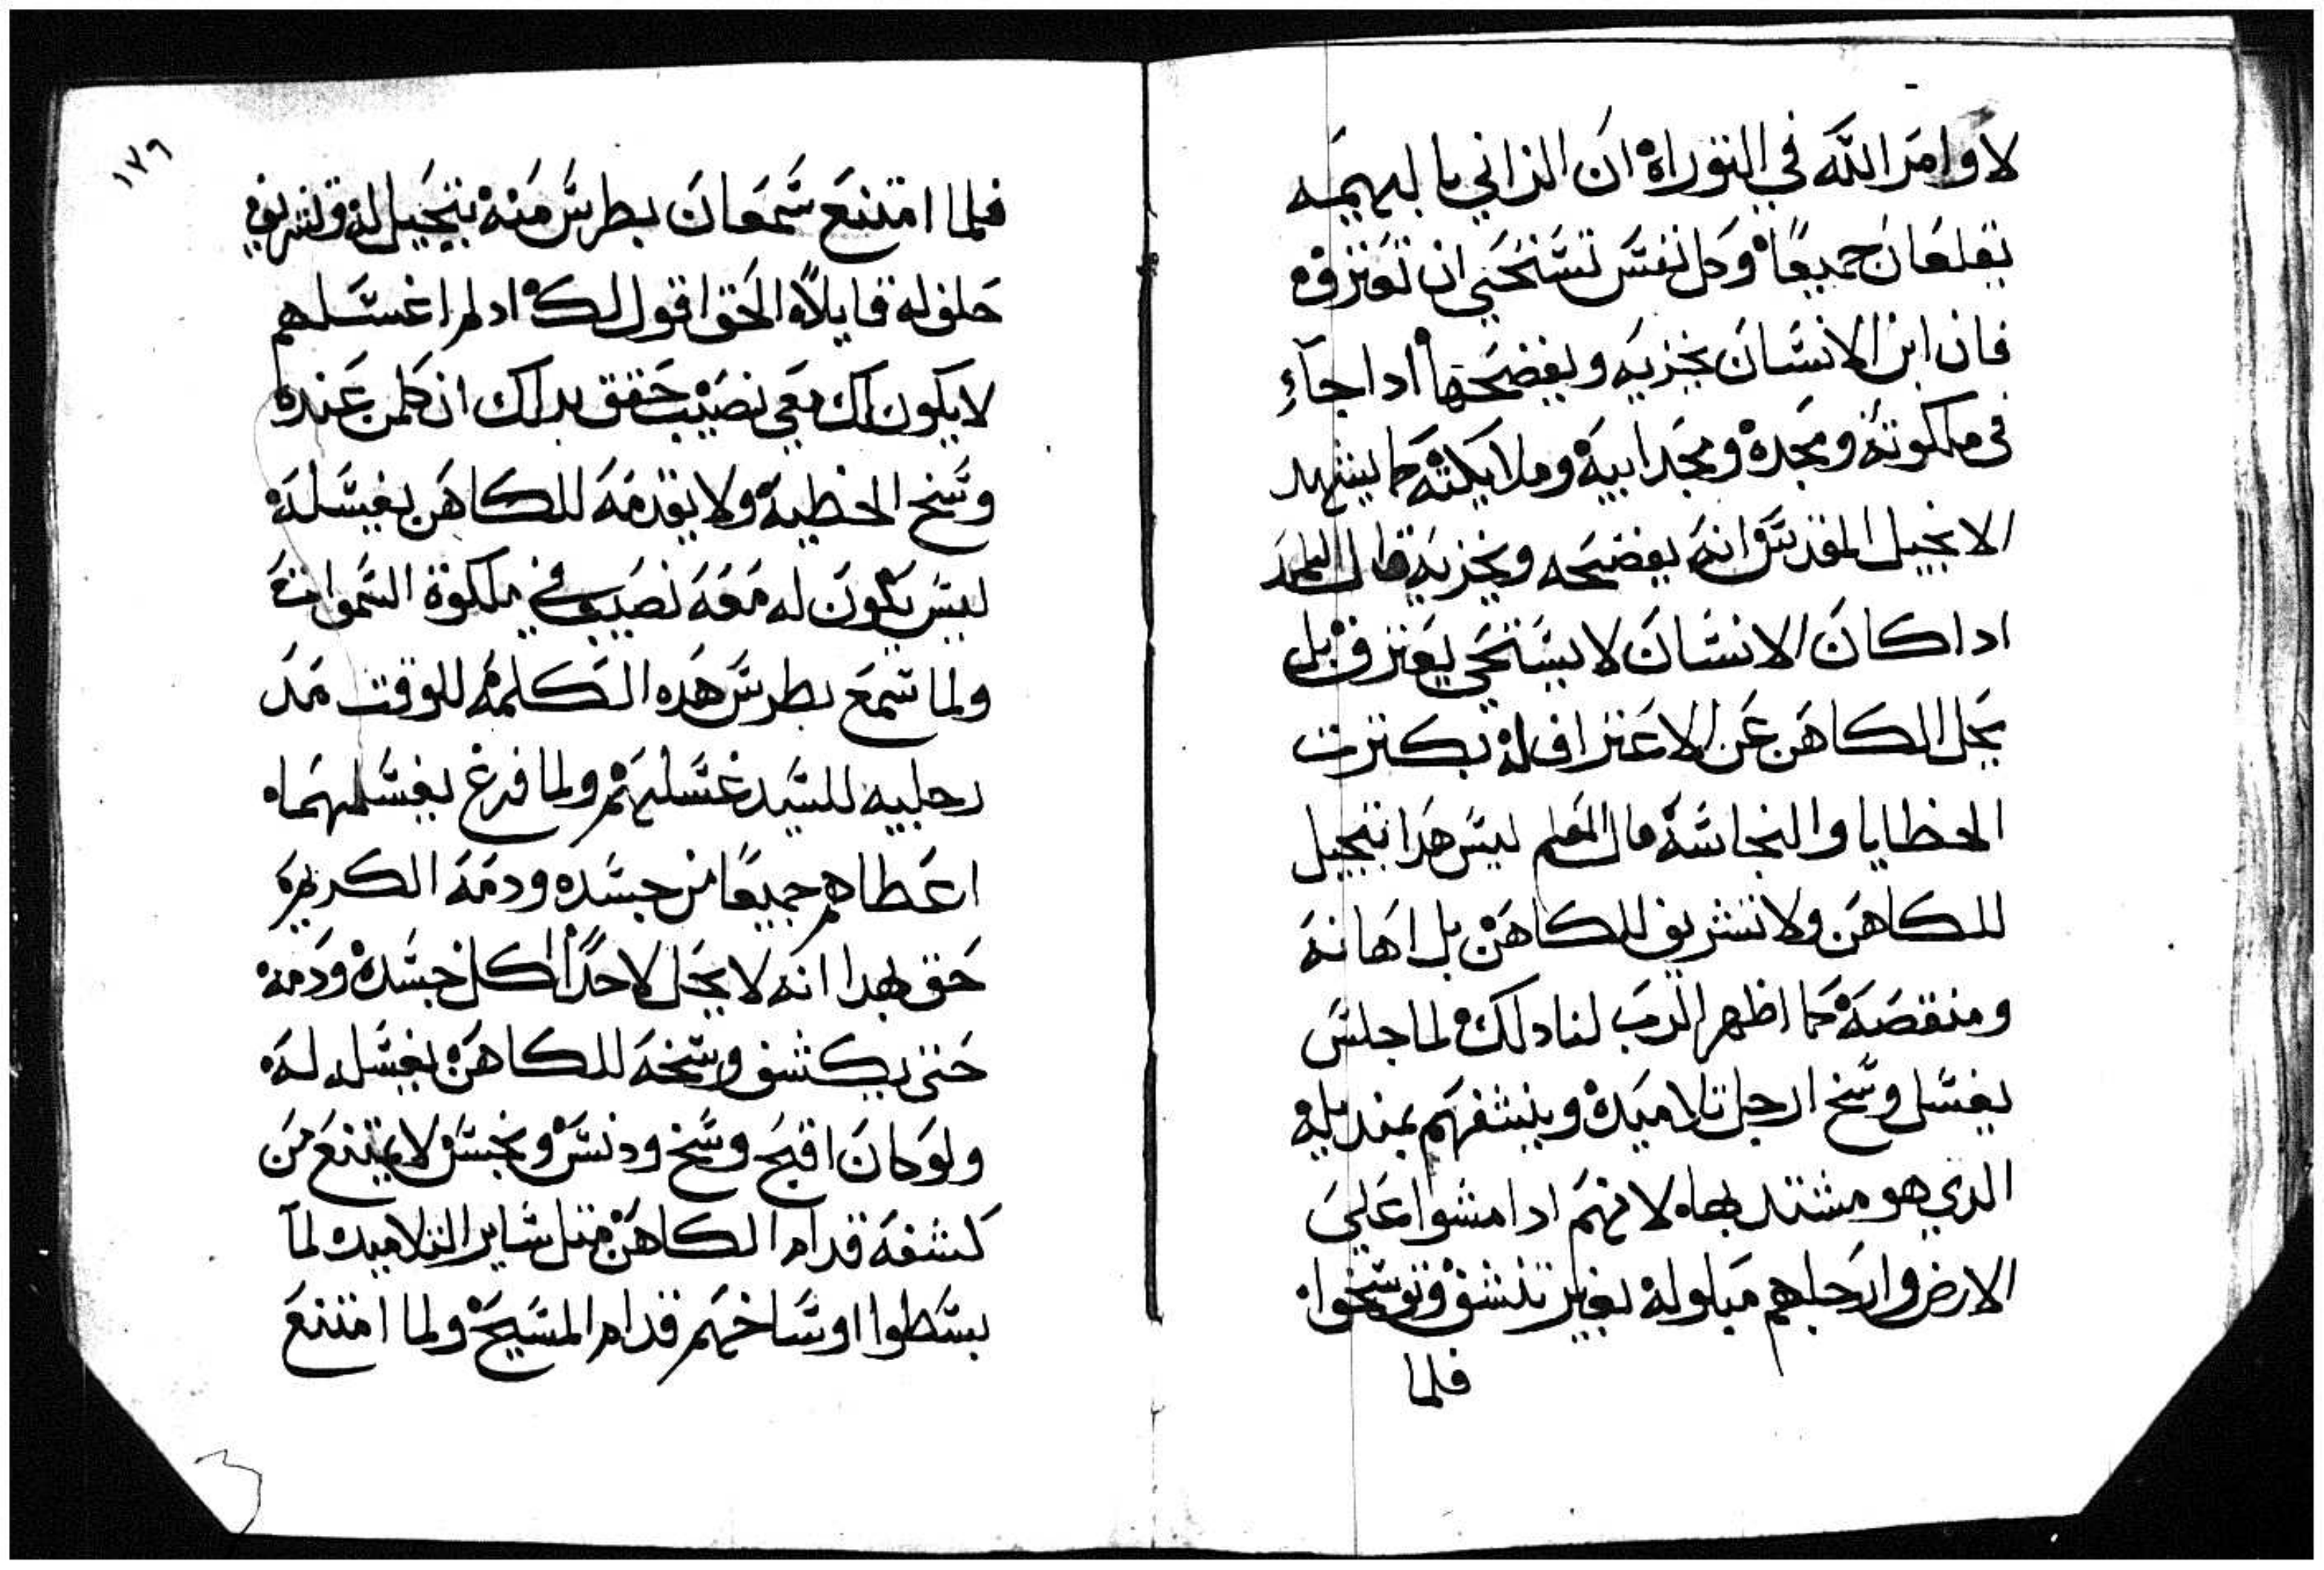 لا وامر الله في التوراة ان الزاني بالبهيمه
يقلعان جميعًا وكل نفس تستحي ان تعترف
فان ابن الانسان يخزيه ويفضحها ادا جآء
في ملكوته ومجده ومجد ابيه وملايكته كما يشهد
الانجيل المقدس وانه يفضحه ويخزيه قال التلميد
ادا كان الانسان لا يستحي يعترف بل
يجل الكاهن عن الاعتراف له بكترت
الخطايا والنجاسه قال المعلم ليس هدا تبجيل
للكاهن ولا تشريف للكاهن بل اهانه
ومنقصه كما اظهر الرب لنا دلك لما جلس
يغسل وسخ ارجل تلاميده وينشفهم بمنديله
الدي هو مشتد بها لانهم ادا مشوا على
الارض وارجلهم مبلوله بغير تنشف وتوسخوا
فلما
١٣٩
فلما امتنع سمعان بطرس منه بتبجيل له وتشريف
حلف له قايلاً الحق اقول لك ادلم اغسلهم
لا يكون لك معي نصيب حقق بدلك ان كلمن عنده
وسخ الخطيه ولا يقدمه للكاهن يغسله
ليس يكون له معه نصيب في ملكوة السموات
ولما سمع بطرس هده الكلمه للوقت مد
رجليه للسيد غسلهم ولما فرغ يغسلهما
اعطاهم جميعًا من جسده ودمه الكريم
حقق بهدا انه لا يحل لاحدًا اكل جسده ودمه
حتى يكشف وسخه للكاهن يغسله له
ولو كان اقبح وسخ ودنس ونجس لا يمتنع من
كشفه قدام الكاهن متل ساير التلاميد لما
بسطوا اوساخهم قدام المسيح ولما امتنع